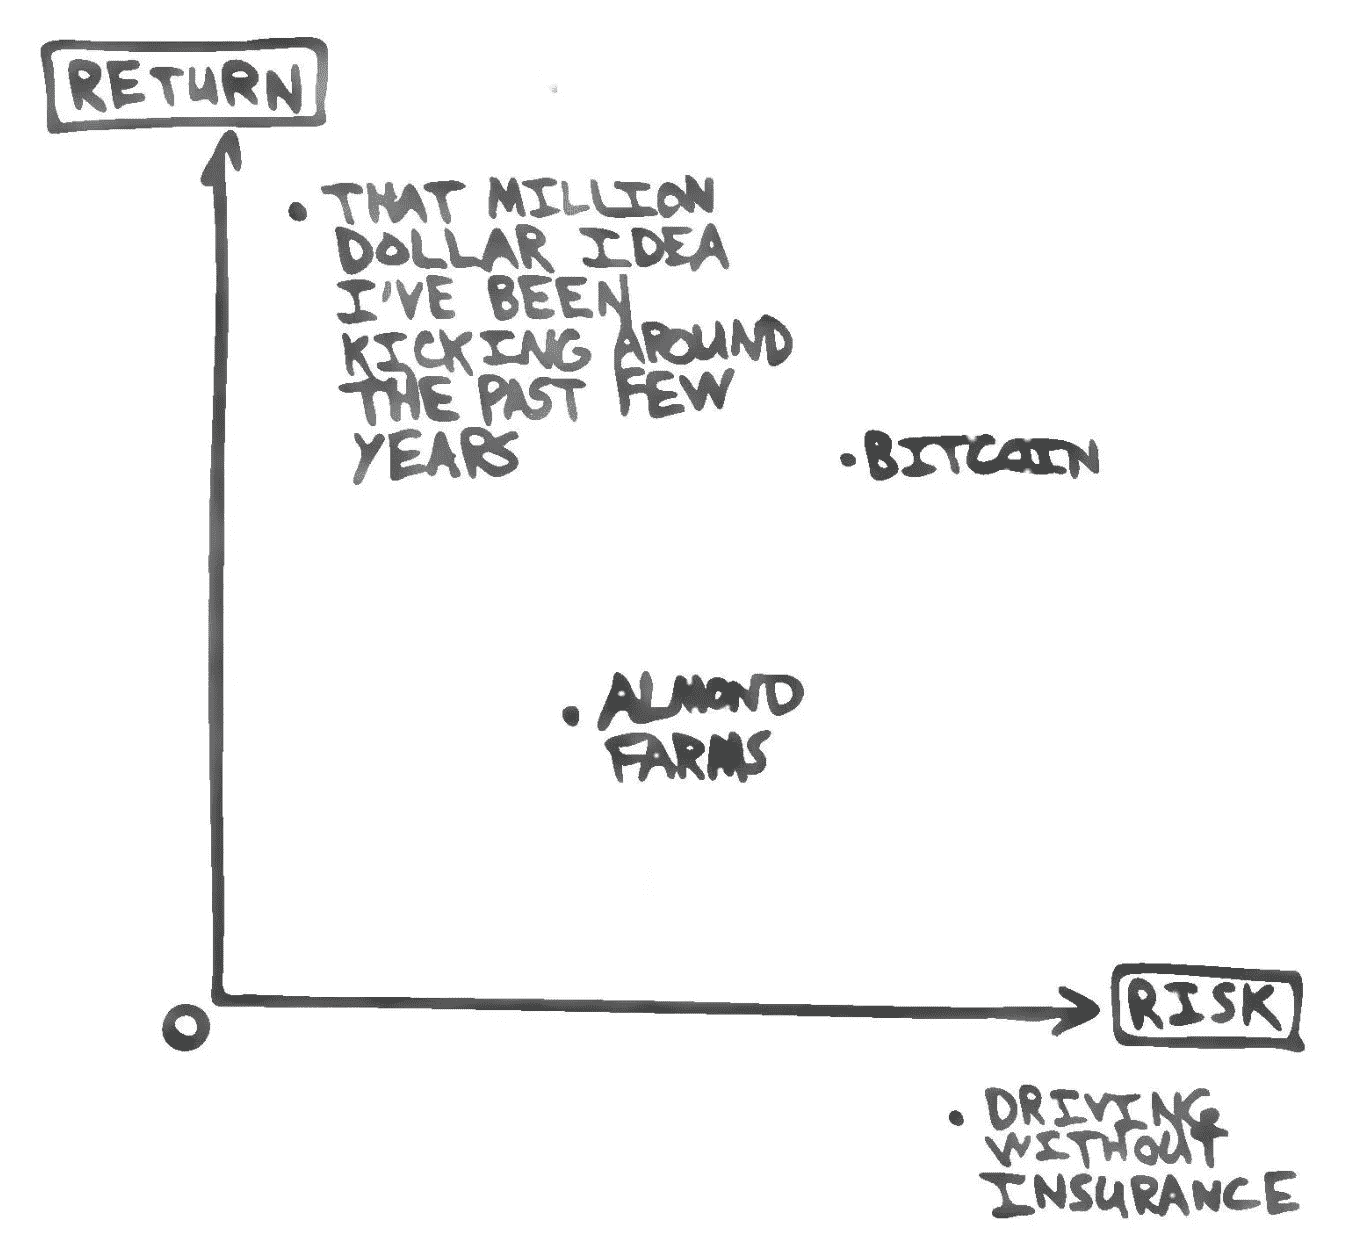 RETURN
THAT MILLION
DOLLAR IDEA
I'VE BEEN
KICKING AROUND
THE PAST FEW
YEARS
BITCOIN
ALMOND
FARMS
O
RISK
DRIVING
WITHOUT
INSURANCE